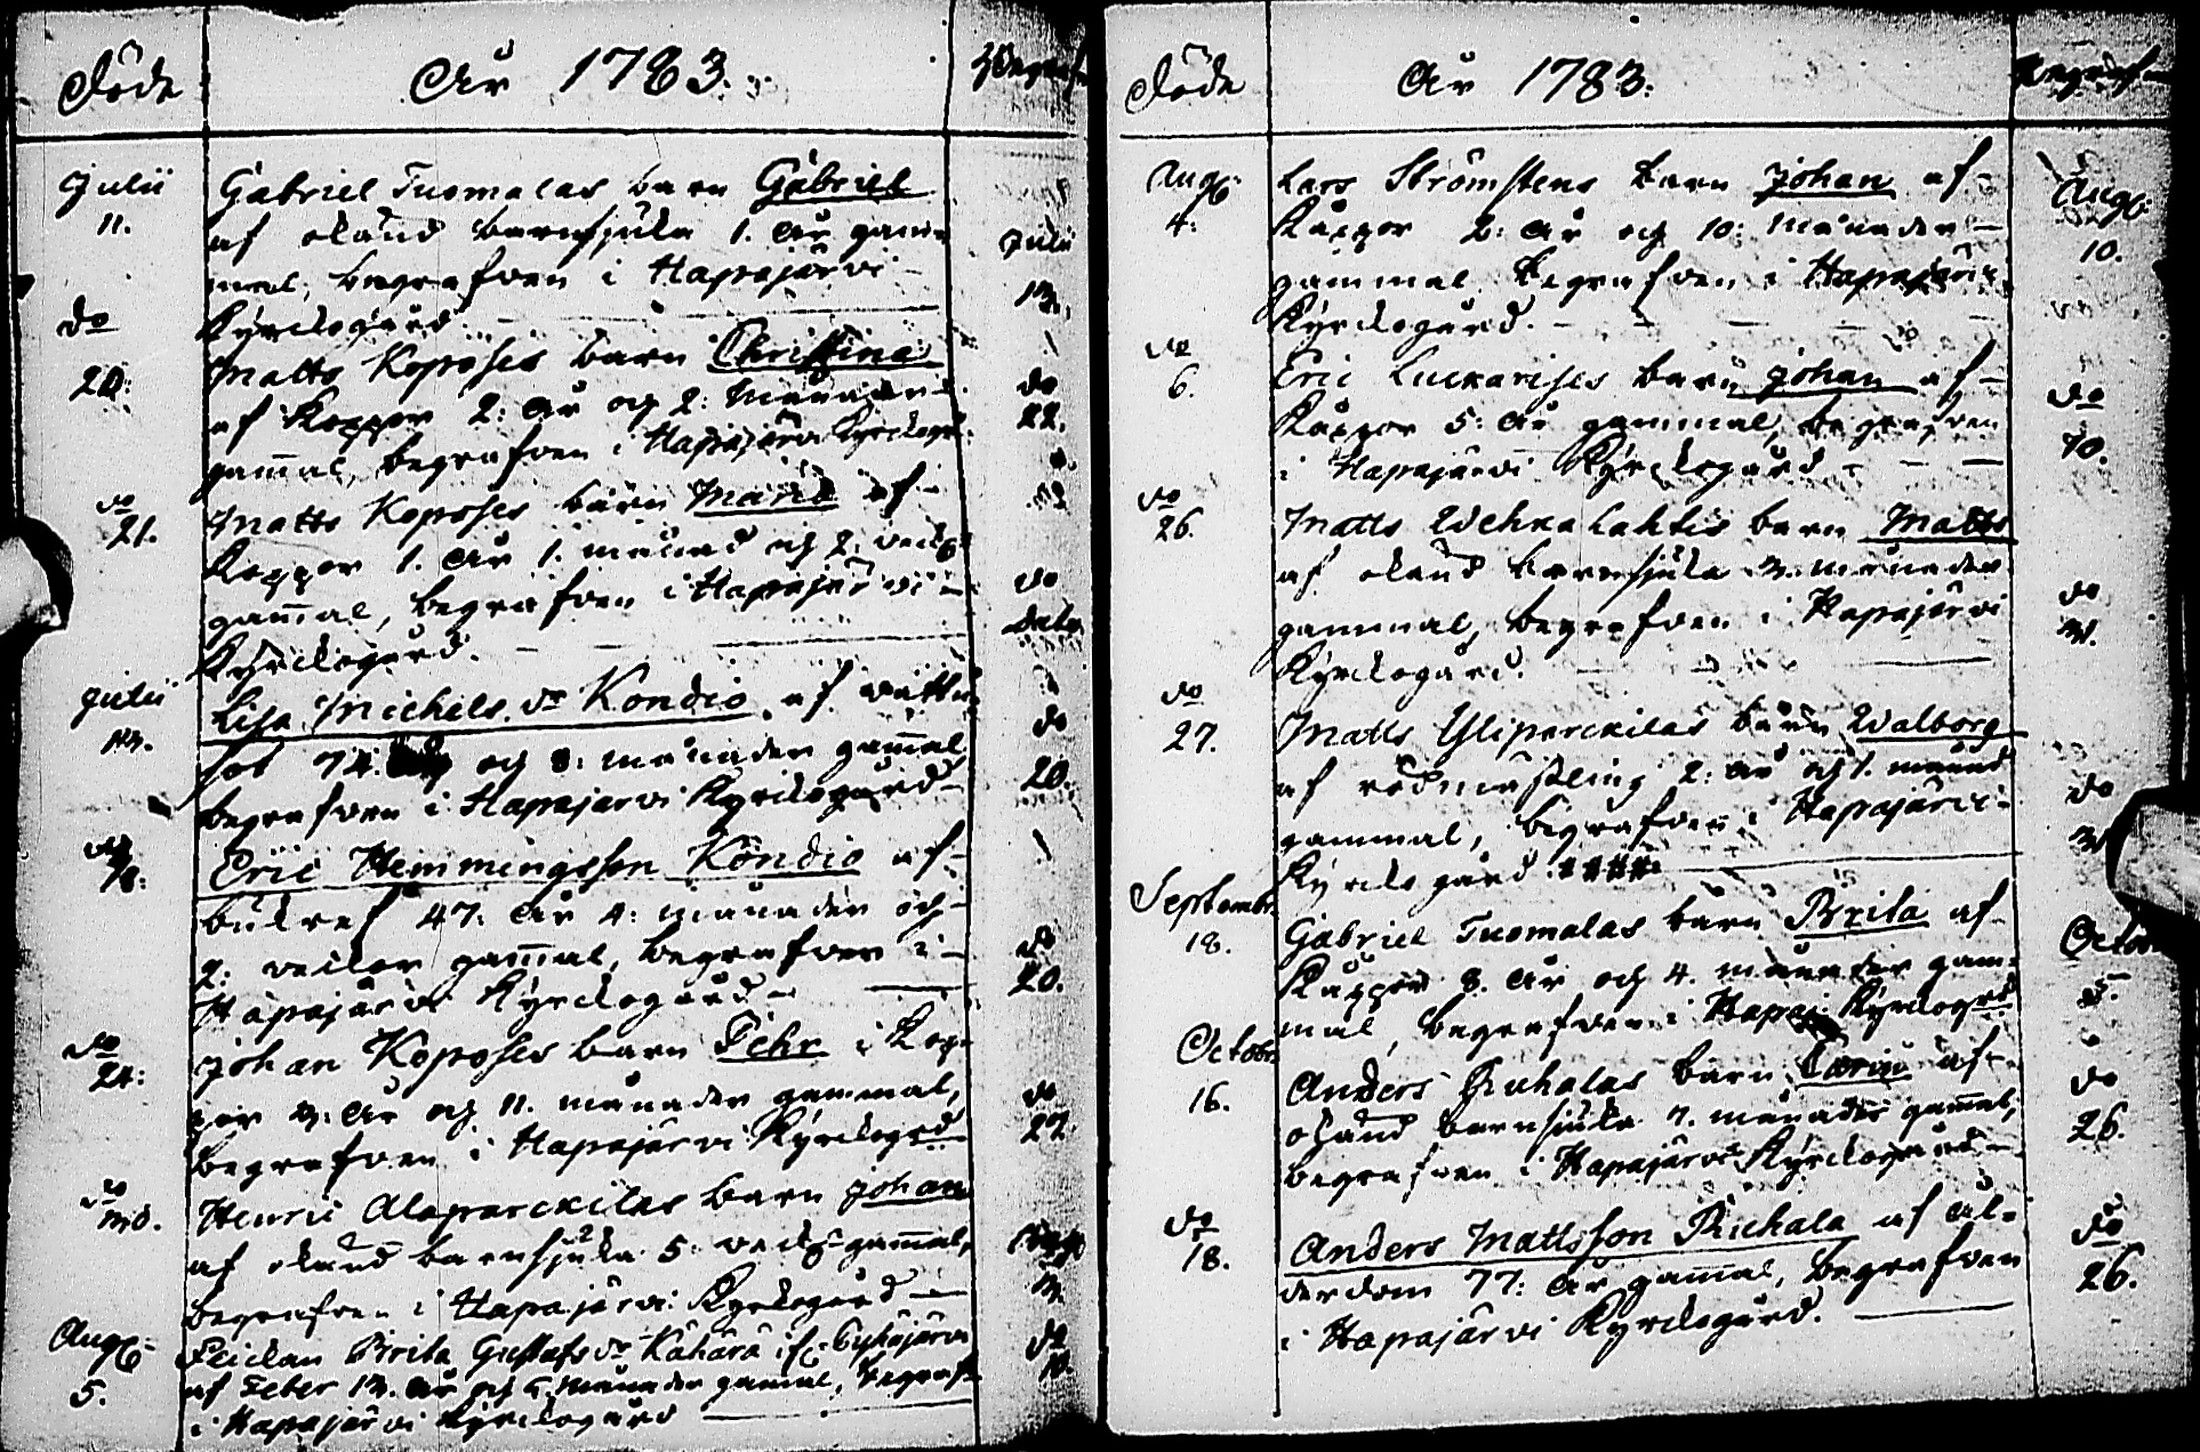 Döde År 1783. Begrafne
Julii Gabriel Tuomalas barn Gabriel
11. af okänd barnsjuka 1. år gam= Julii
mal, begrafven i Hapajärvi 13.
Kyrckogård.
do Matts Koposes barn Christina
20. af Koppor 2: år och 2: månader do
gam̄al, begrafven i Hapajärvi Kyrckog. 22.
do Matts Koposes barn Maria af
21. Koppor 1. år 1. månad och 2. veck.
gam̄al, begrafven i Hapajärvi do
Kyrckogård. dato
Julii Lisa Michels dr Kondio, af vattu
13. sot 74. och 8: månader gam̄al do
begrafven i Hapajärvi Kyrckogård 20.
do Eric Hemmingsson Kondio af
18. bukref 47: år 4: månader och
2: veckor gam̄al, begrafven i do
Hapajärvi Kyrckogård 20.
do Johan Koposes barn Pehr i Kop=
24: por 3: år och 11. månader gammal, do
begrafven i Hapajärvi Kyrckogrd 27.
do Henric Alaparckilas barn Johan
30. af okänd barnsjuka 5: veck. gam̄al, Aug:
begrafven i Hapajärvi Kyrckogård 3.
Aug: Pickan Brita Gustafs dr Kähärä if. Pyhäjärvi do
5. af Feber 13. år och 5. månader gam̄al, begraf. 10.
i Hapajärvi Kyrckogård
Döde År 1783. Begrafne
Aug: Lars Strömstens barn Johan af Aug:
4. Kåppor 2: år och 10: månader 10.
gammal begrafven i Hapajärvi
Kyrckogård.
do Eric Luckarises barn Johan af
6. Kåppor 5: år gammal, begrafven do
i Hapajärvi Kyrckogård 10.
do Matts Wehka Lahtis barn Matts
26. af okänd barnsjuka 3. månader
gammal, begrafven i Hapajärvi do
Kyrckogård. 31.
do Matts Yliparckilas barn Walborg
27. af rödmäsling 2: år och 1. månad
gammal, begrafven i Hapajärvi do
Kyrckogård.
Septembr. Gabriel Tuomalas barn Brita af
18. Kåppor 8. år och 4. månader gam= Octobr
mal, begrafven i Hapaj. Kyrckogrd 5.
Octobr. Anders Ruhalas barn Carin af
16. okänd barnsjuka 7. månader gam̄al, do
begrafven i Hapajärvi Kyrckogård 26.
do Anders Mattsson Ruhala af ål= do
18. derdom 77: år gam̄al, begrafven 26.
i Hapajärvi Kyrckogård.